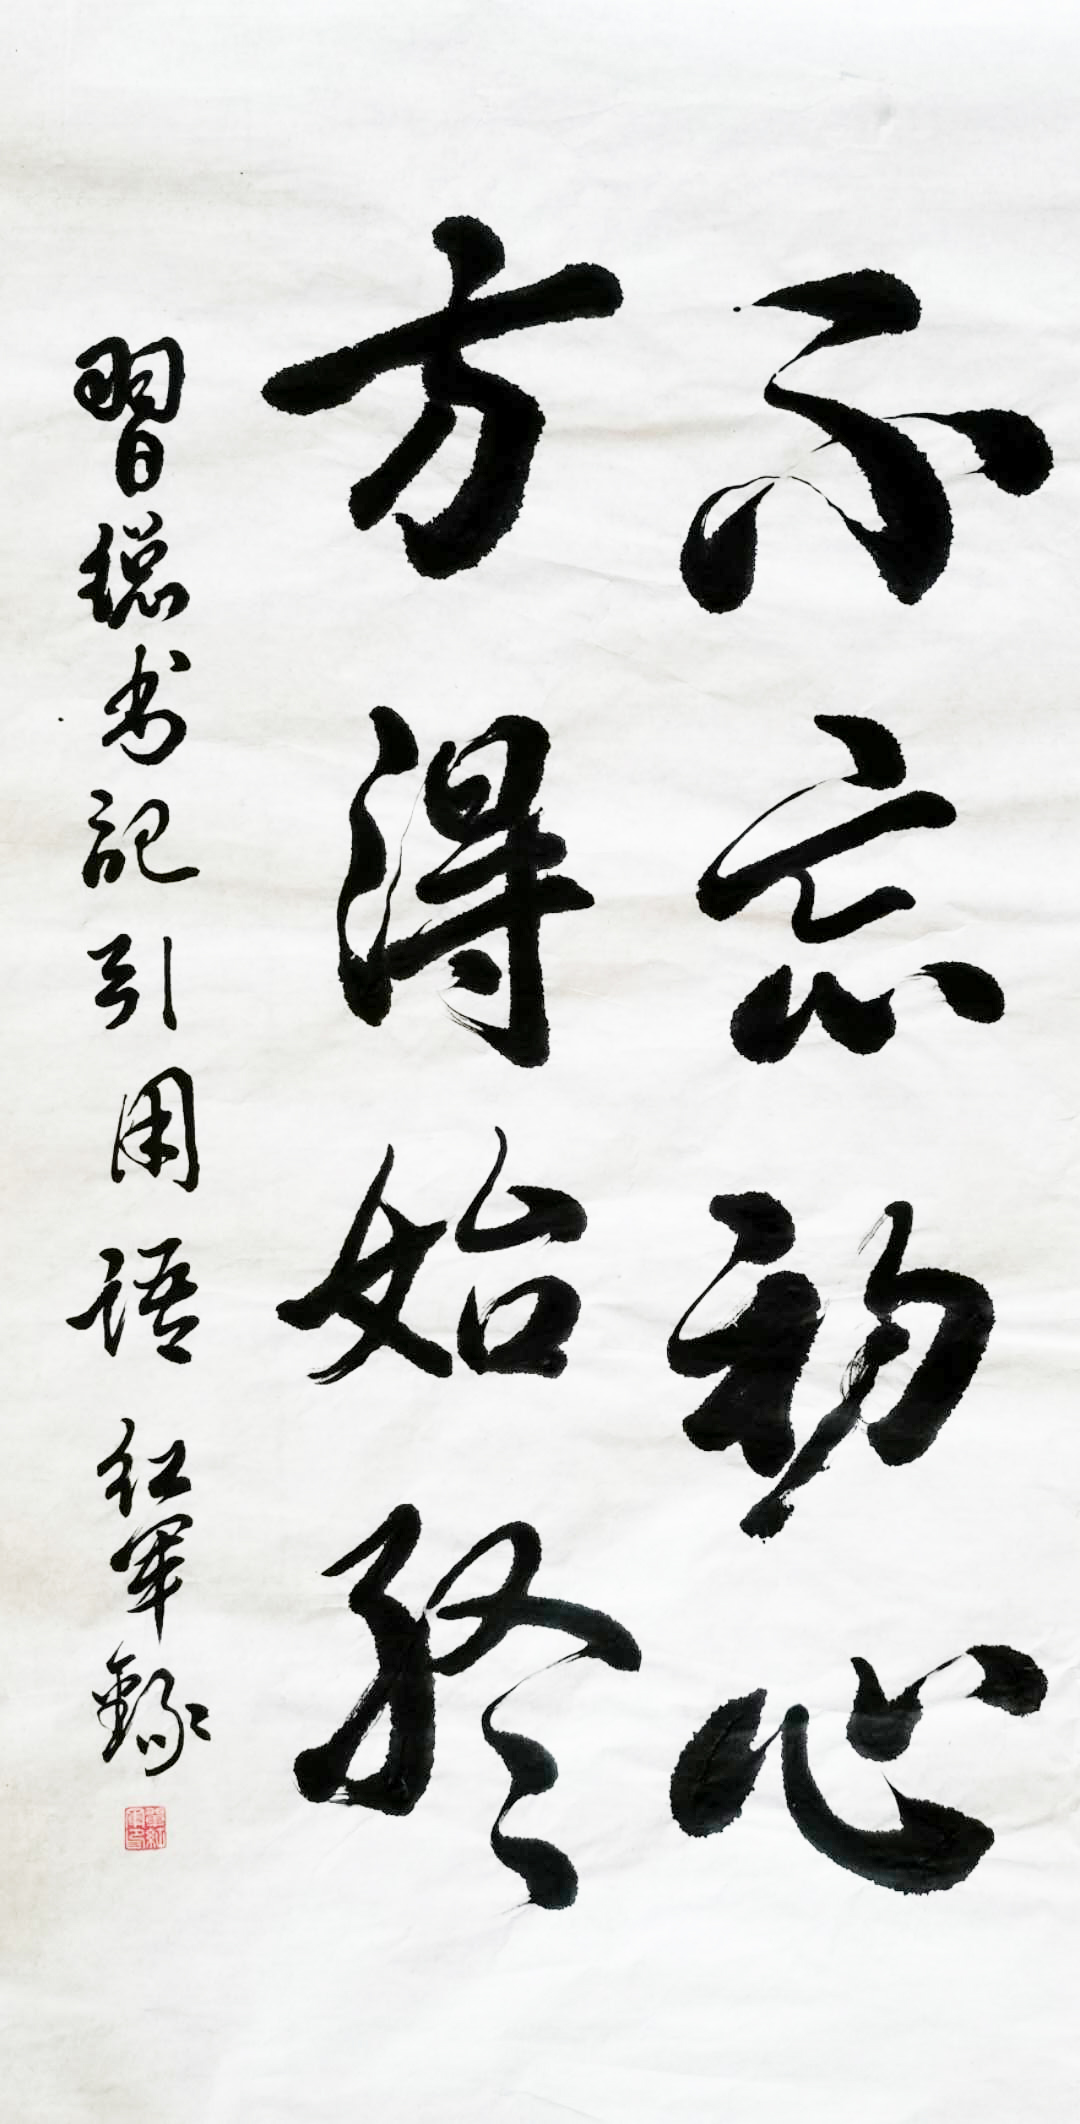 不忘初心
方得始终
習總书記引用語 红軍錄